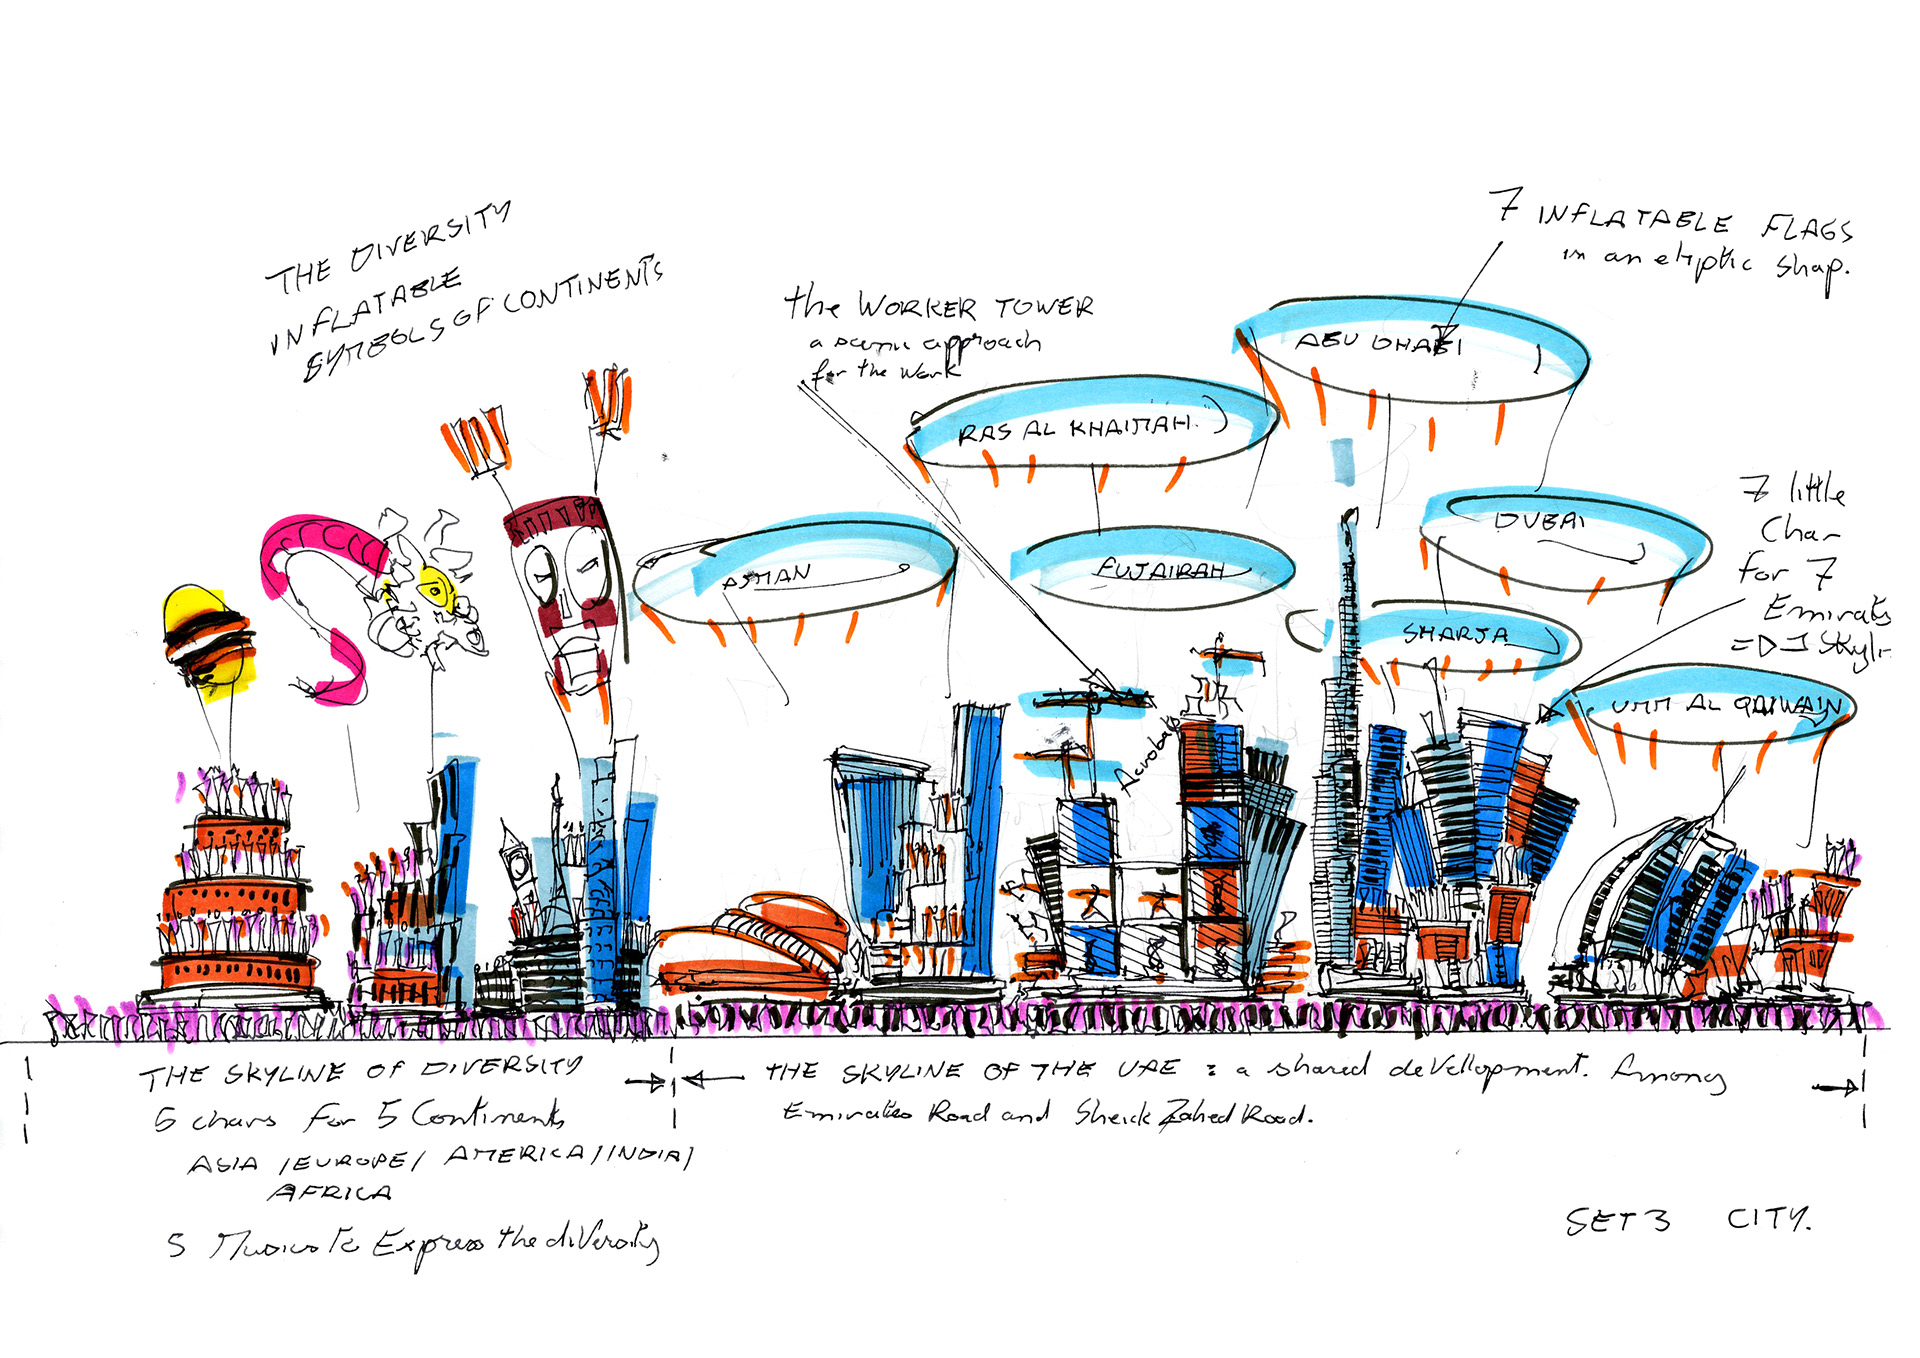 THE DIVERSITY
INFLATABLE
SYMBOLS OF CONTINENTS
the WORKER TOWER
a scenic approach
for the work
7 INFLATABLE FLAGS
in an eliptic shap.
ABU DHABI
RAS AL KHAIMAH
AJMAN
FUJAIRAH
DUBAI
SHARJA
UMM AL QAIWAIN
7 little
Char
for 7
Emirats
Acrobats
THE SKYLINE OF DIVERSITY
5 chars for 5 Continents
ASIA /EUROPE/ AMERICA/INDIA/
AFRICA
5 Musics to Express the diversity
THE SKYLINE OF THE UAE : a shared devellopment. Among
Emirates Road and Sheick Zahed Road.
SET 3 CITY.